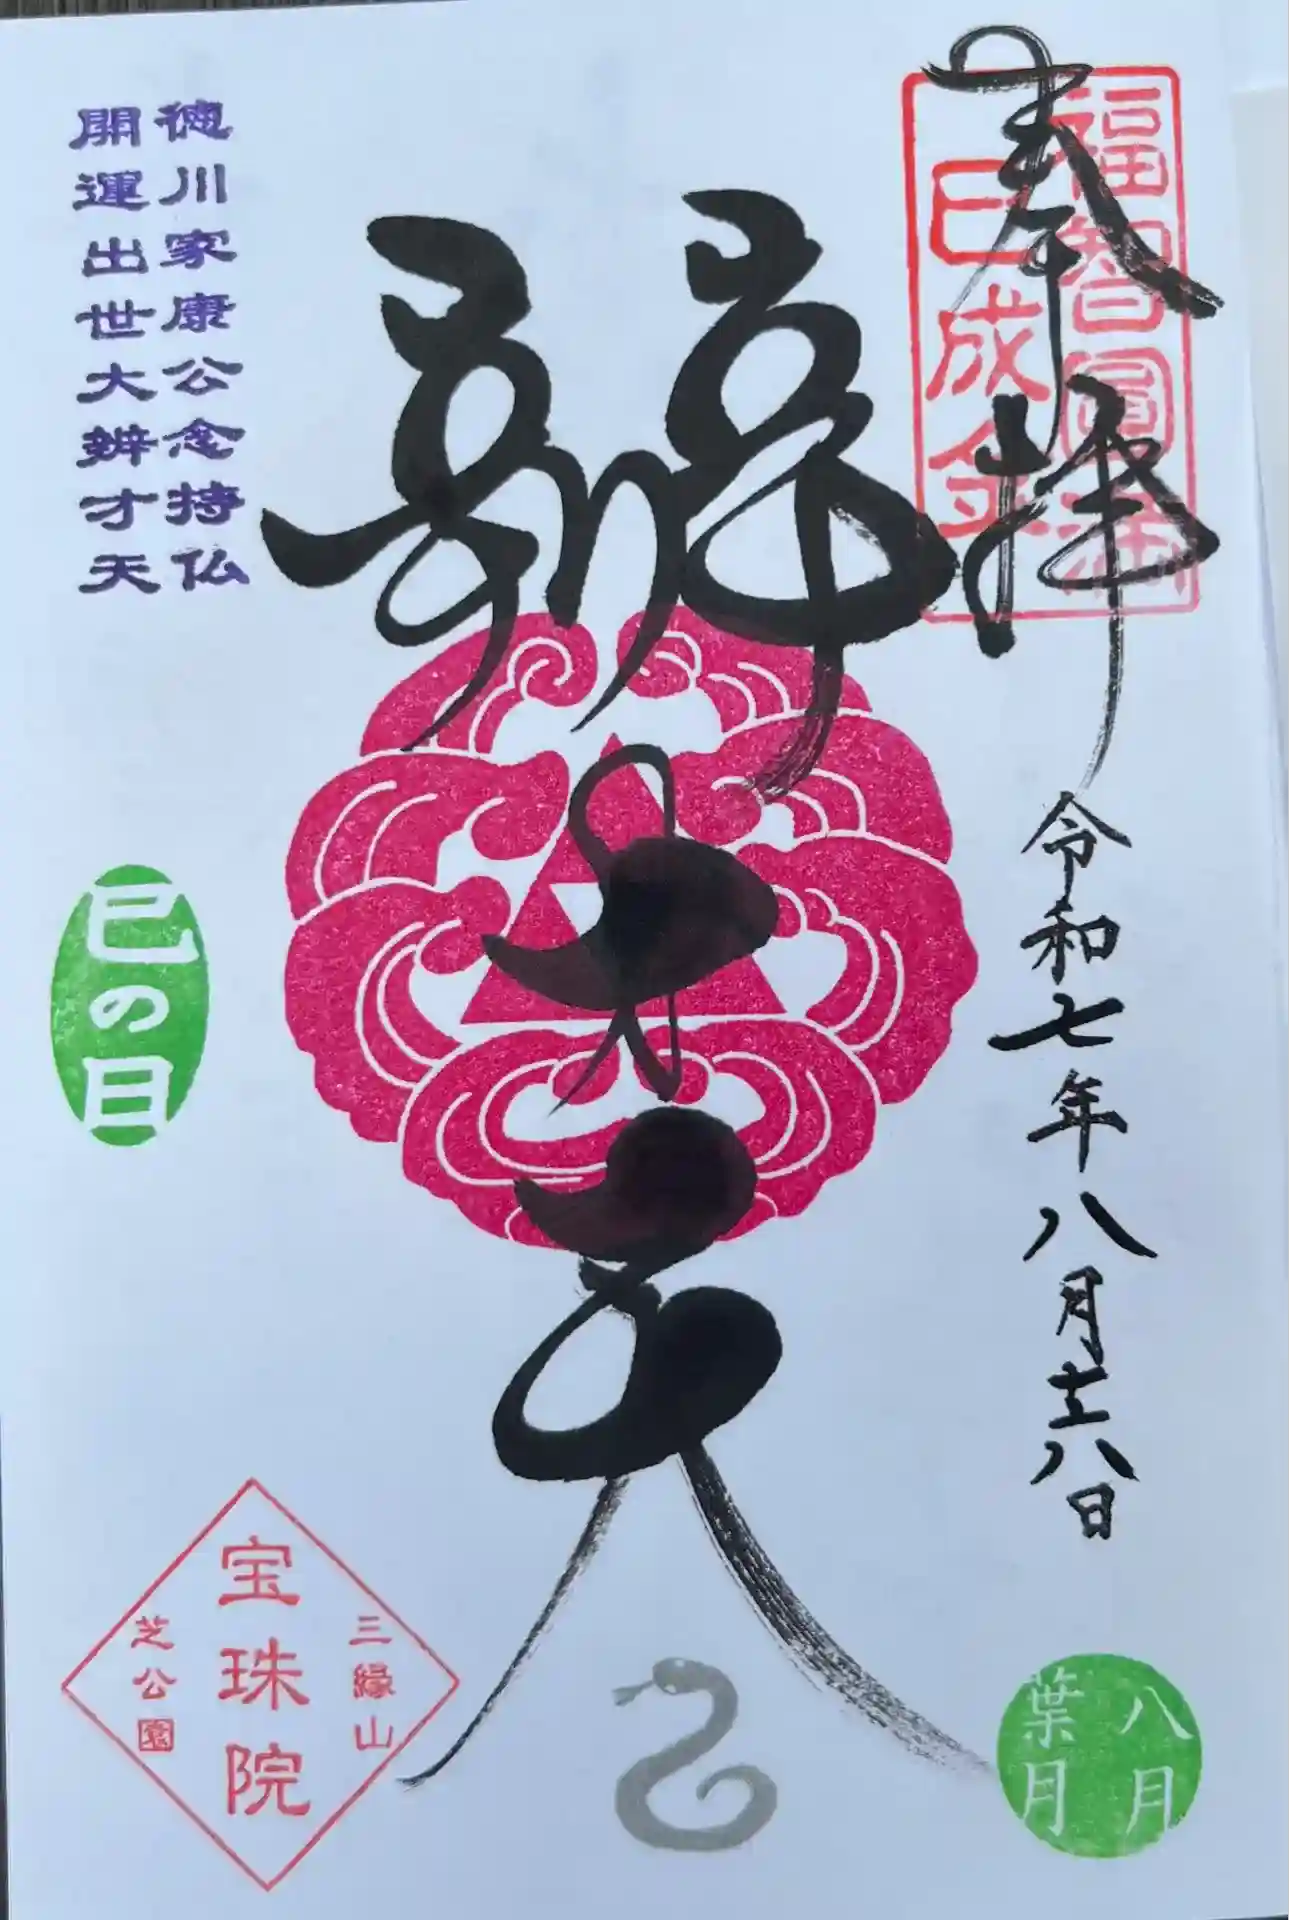 奉拝
福智圓満
巳成金
令和七年八月廿八日
八月
葉月
辨才天
徳川家康公念持仏
開運出世大辨才天
巳の日
三縁山
宝珠院
芝公園